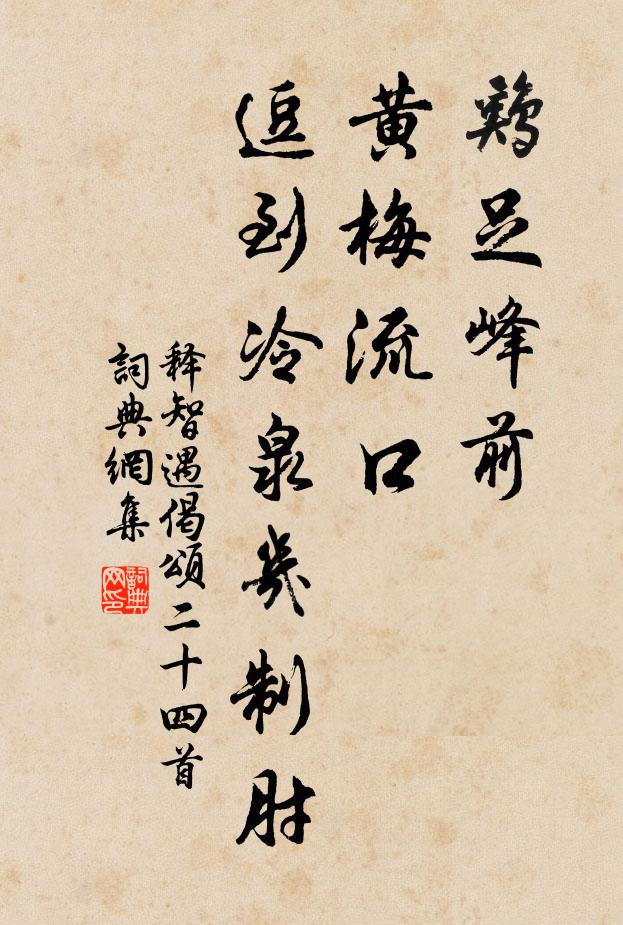 鷄足峰前
黄梅流口
逗到冷泉幾制肘
释智遇偈頌二十四首
詞典網集
詞典
网印